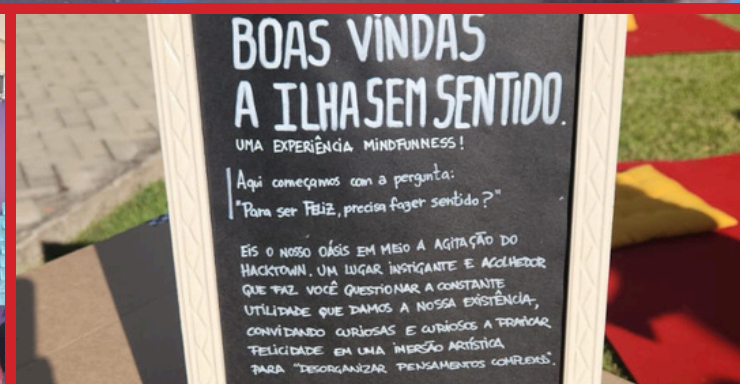 BOAS VINDAS
A ILHA SEM SENTIDO.
UMA EXPERIÊNCIA MINDFUNNESS!
Aqui começamos com a pergunta:
"Para ser FELIZ, precisa fazer sentido?"
EIS O NOSSO OÁSIS EM MEIO A AGITAÇÃO DO
HACKTOWN. UM LUGAR INSTIGANTE E ACOLHEDOR
QUE FAZ VOCÊ QUESTIONAR A CONSTANTE
UTILIDADE QUE DAMOS A NOSSA EXISTÊNCIA,
CONVIDANDO CURIOSAS E CURIOSOS A PRATICAR
FELICIDADE EM UMA IMERSÃO ARTÍSTICA
PARA "DESORGANIZAR PENSAMENTOS COMPLEXOS".